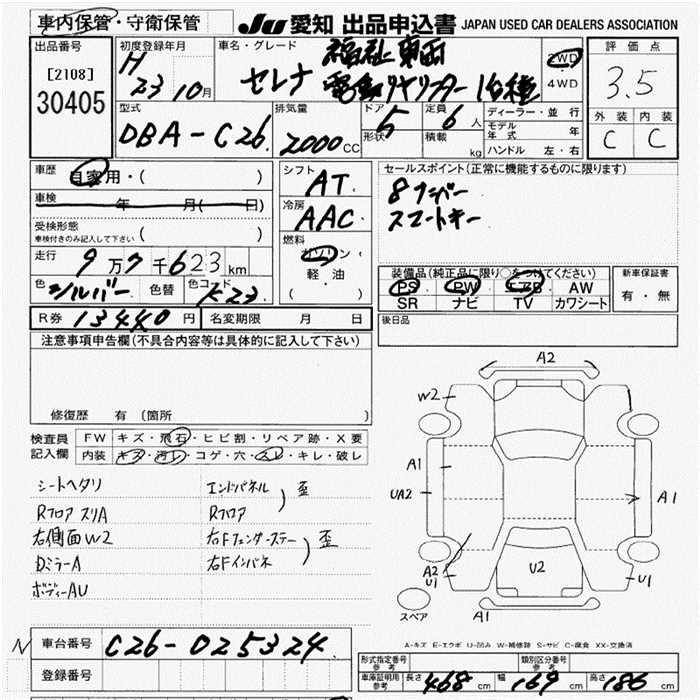 車内保管・守衛保管
JU 愛知 出品申込書 JAPAN USED CAR DEALERS ASSOCIATION
出品番号
[2108]
30405
初度登録年月
H
23 10月
車名・グレード
福祉車両
セレナ
2WD
・
4WD
評価点
3.5
外装 内装
C C
型式
DBA-C26
排気量
2000CC
ドア
5
形状
定員
6人
積載
kg
ディーラー・並行
モデル年式
年
ハンドル 左・右
車歴
自家用・( )
車検
年 月( 日)
受検形態
車検付きのみ記入して下さい ( )
走行
9万7千623km
色
シルバー
色替
色コード
K23
シフト
AT
冷房
AAC
燃料
ガソリン
軽・油
( )
セールスポイント(正常に機能するものに限ります)
8ナンバー
スマートキー
装備品(純正品に限り○をつけてください)
PS PW エアB AW
SR ナビ TV カワシート
新車保証書
有・無
後日品
R券 13440円
名変期限 月 日
注意事項申告欄(不具合内容等は具体的に記入して下さい)
修復歴 有(箇所
検査員
記入欄
FW キズ・飛石・ヒビ割・リペア跡・X要
内装 キズ・汚レ・コゲ・穴・スレ・キレ・破レ
シートヘタリ
Rフロア スリA
右側面W2
DミラーA
ボディーAU
エンドパネル
Rフロア
歪
右Fフェンダーステー
右Fインパネ
歪
A2
W2
A1
UA2
A1
A2
U1
U2
U1
A1
スペア
A-キズ E-エクボ U-凹み W-補修跡 S-サビ C-腐食 XX-交換済
N
車台番号
C26-025324
登録番号
形式指定番号
参考
類別区分番号
参考
車庫証明用
参考
長さ 468cm
幅 169cm
高さ 186cm